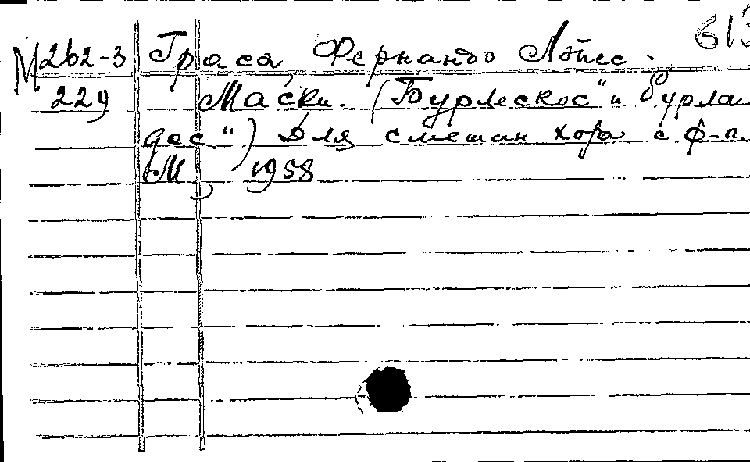 613
М262-3 Граса, Фернандо Лопес.
229 Маски. ("Бурлескос" и бурла
дос") Для смешан хора с ф-п.
М., 1958